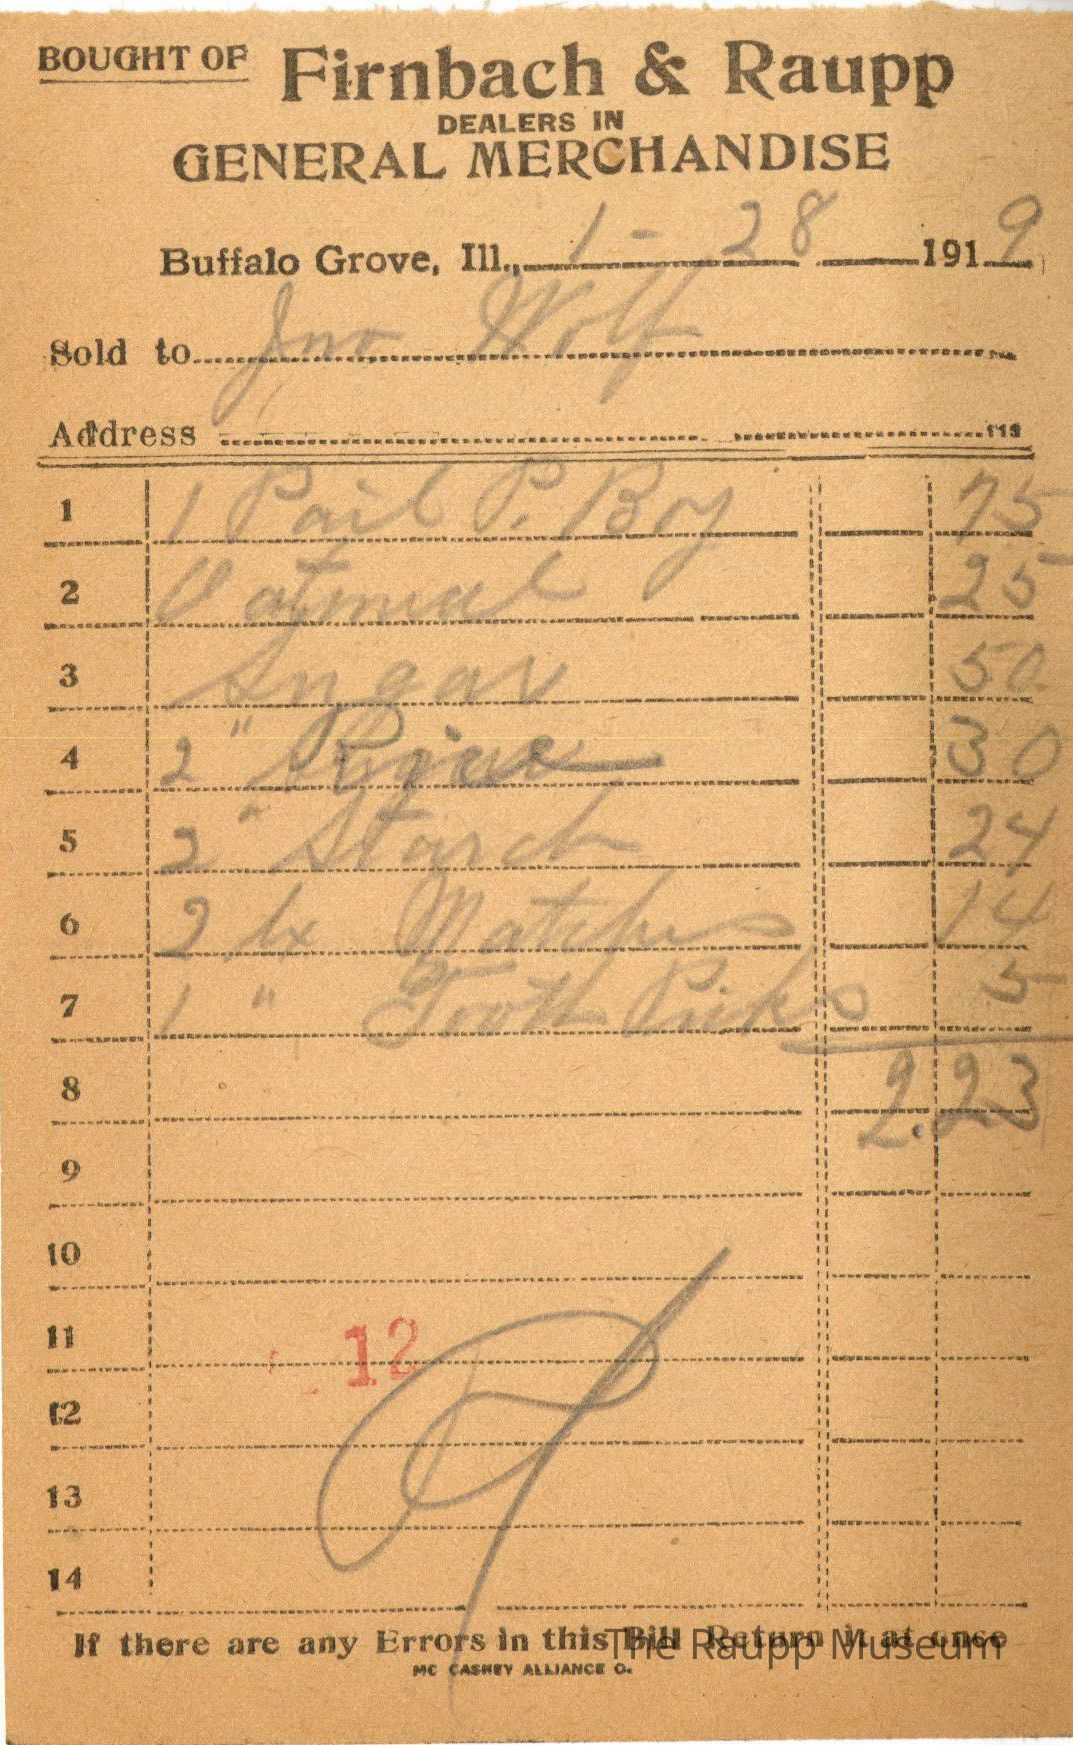 BOUGHT OF Firnbach & Raupp
DEALERS IN
GENERAL MERCHANDISE
Buffalo Grove, Ill., 1 - 28 1919
Sold to Jno Wolf
Address 113
1 1 Pail P. Boy 75
2 Oatmeal 25
3 Sugar 50
4 2 " 30
5 2 " Starch 24
6 2 bx Matches 14
7 1 " Tooth Picks 5
8 2.23
9
10
11
12
12
13
14
If there are any Errors in this Bill Return it at once
The Raupp Museum
MC CASKEY ALLIANCE O.